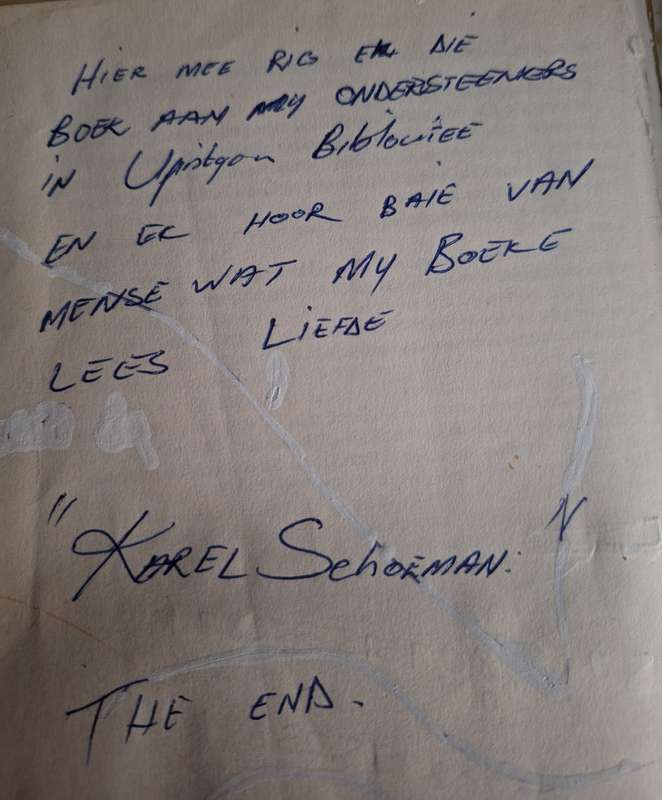 HIER MEE RIG EK DIE
BOEK AAN MY ONDERSTEENERS
IN Upintgon Bibloutiee
EN EK HOOR BAIE VAN
MENSE WAT MY BOEKE
LEES LIEFDE
"KAREL SCHOEMAN."
THE END.